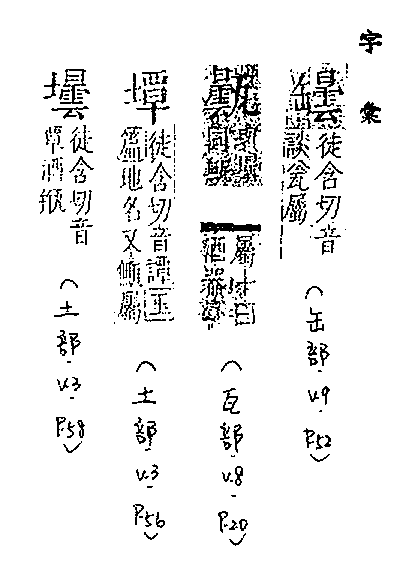 字彙
罎 徒含切音
談瓮屬
(缶部·v.9·P.52)
屬
酒器
(瓦部·v.8·P.20)
墰 徒含切音譚
地名又
(土部·v.3·P.56)
壜 徒含切音
覃酒瓶
(土部·v.3·P.58)